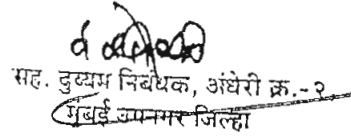 सह. दुय्यम निबंधक, अंधेरी क्र.-२
मुंबई उपनगर जिल्हा